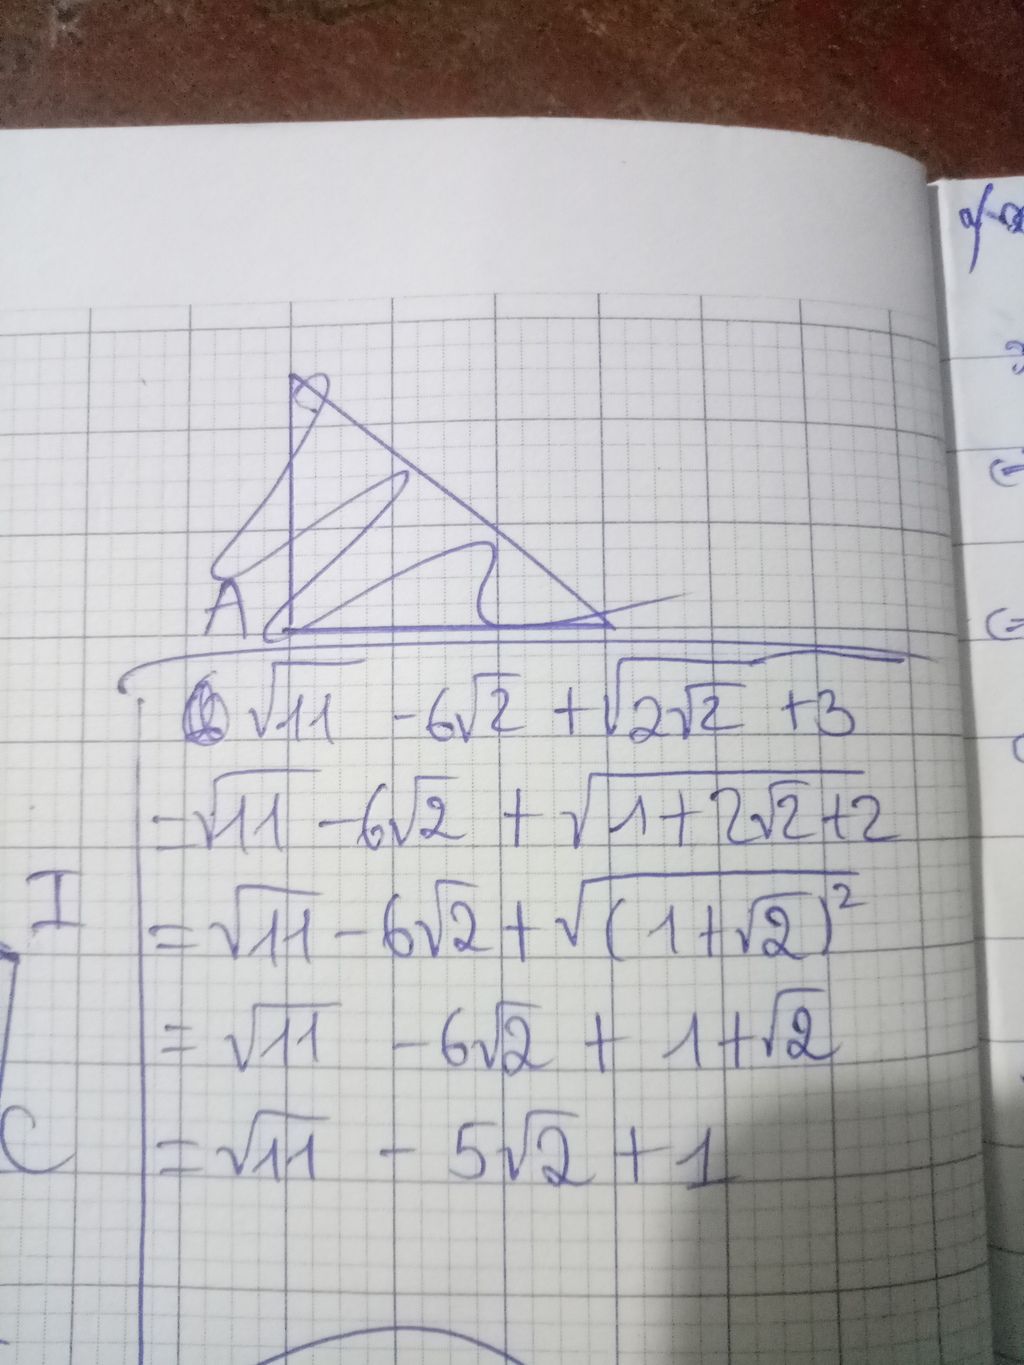 A
√11 - 6√2 + √(2√2 + 3)
= √11 - 6√2 + √(1 + 2√2 + 2)
= √11 - 6√2 + √((1 + √2)²)
= √11 - 6√2 + 1 + √2
= √11 - 5√2 + 1
I
C